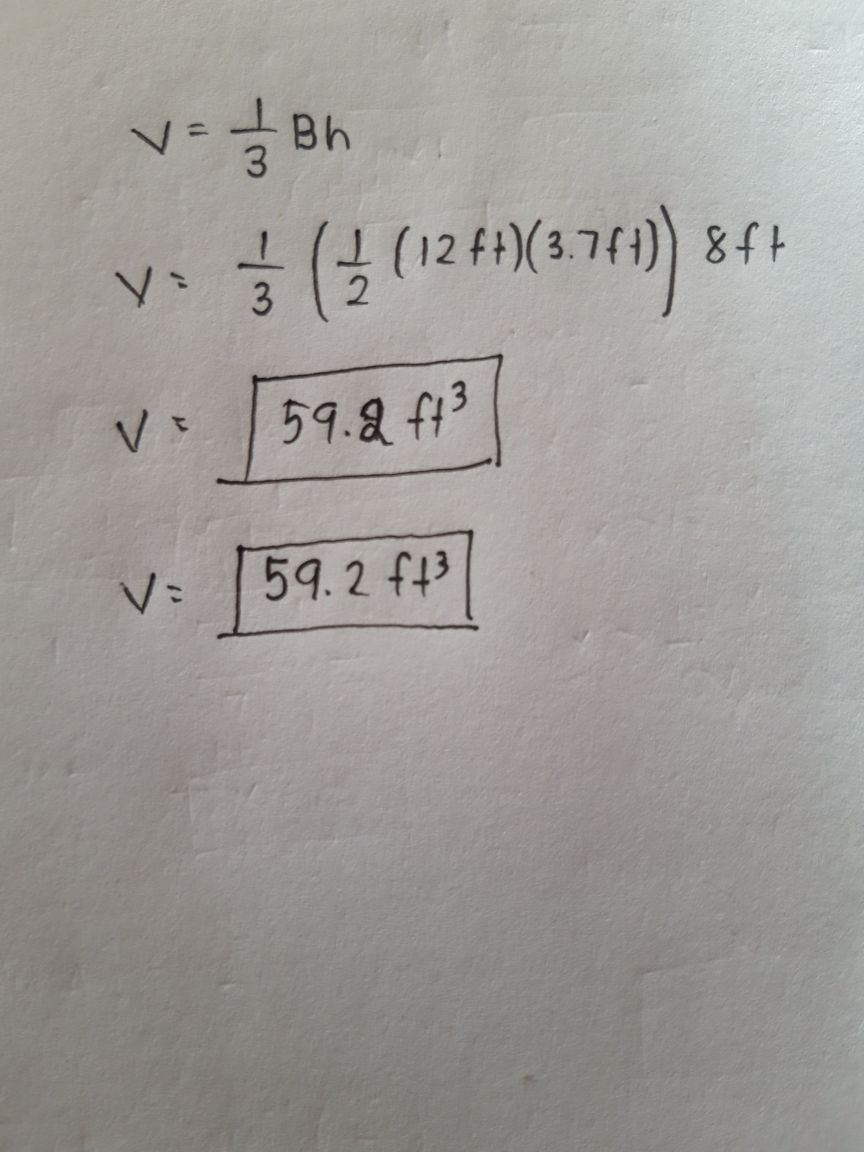 V = 1/3 Bh
V = 1/3 (1/2 (12 ft)(3.7ft)) 8ft
V = 59.2 ft³
V = 59.2 ft³